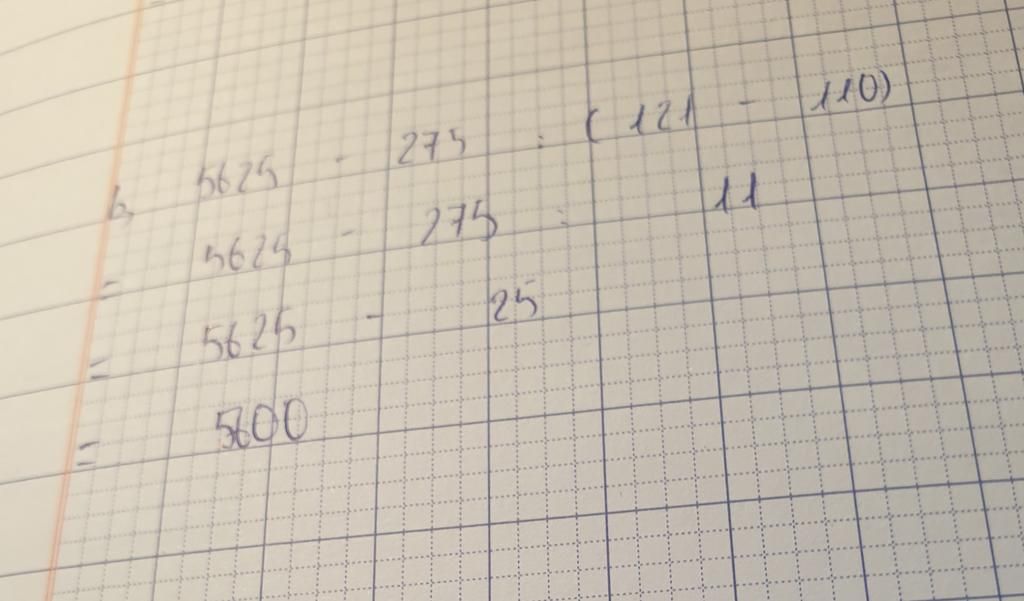 b, 5625 - 275 : ( 121 - 110)
= 5625 - 275 : 11
= 5625 - 25
= 5600